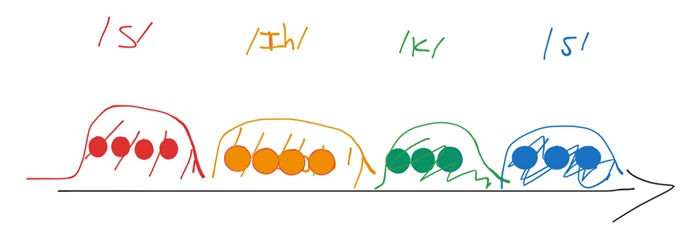 /S/ /Ih/ /K/ /S/